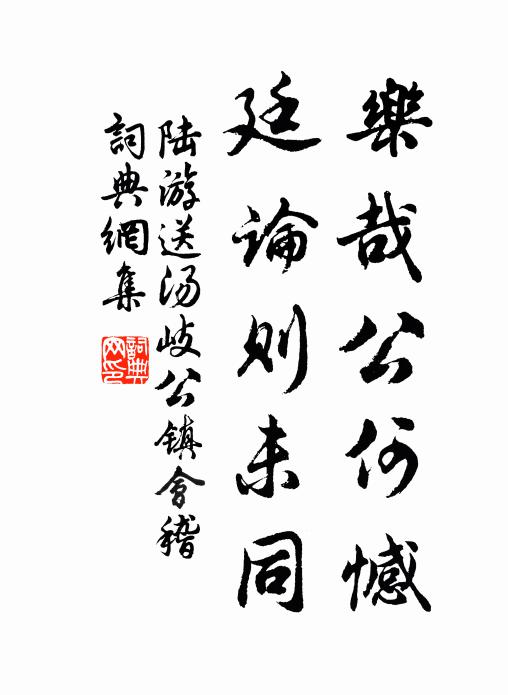 樂哉公何憾
廷論則未同
陆游送汤岐公镇會稽
詞典網集
詞典網印